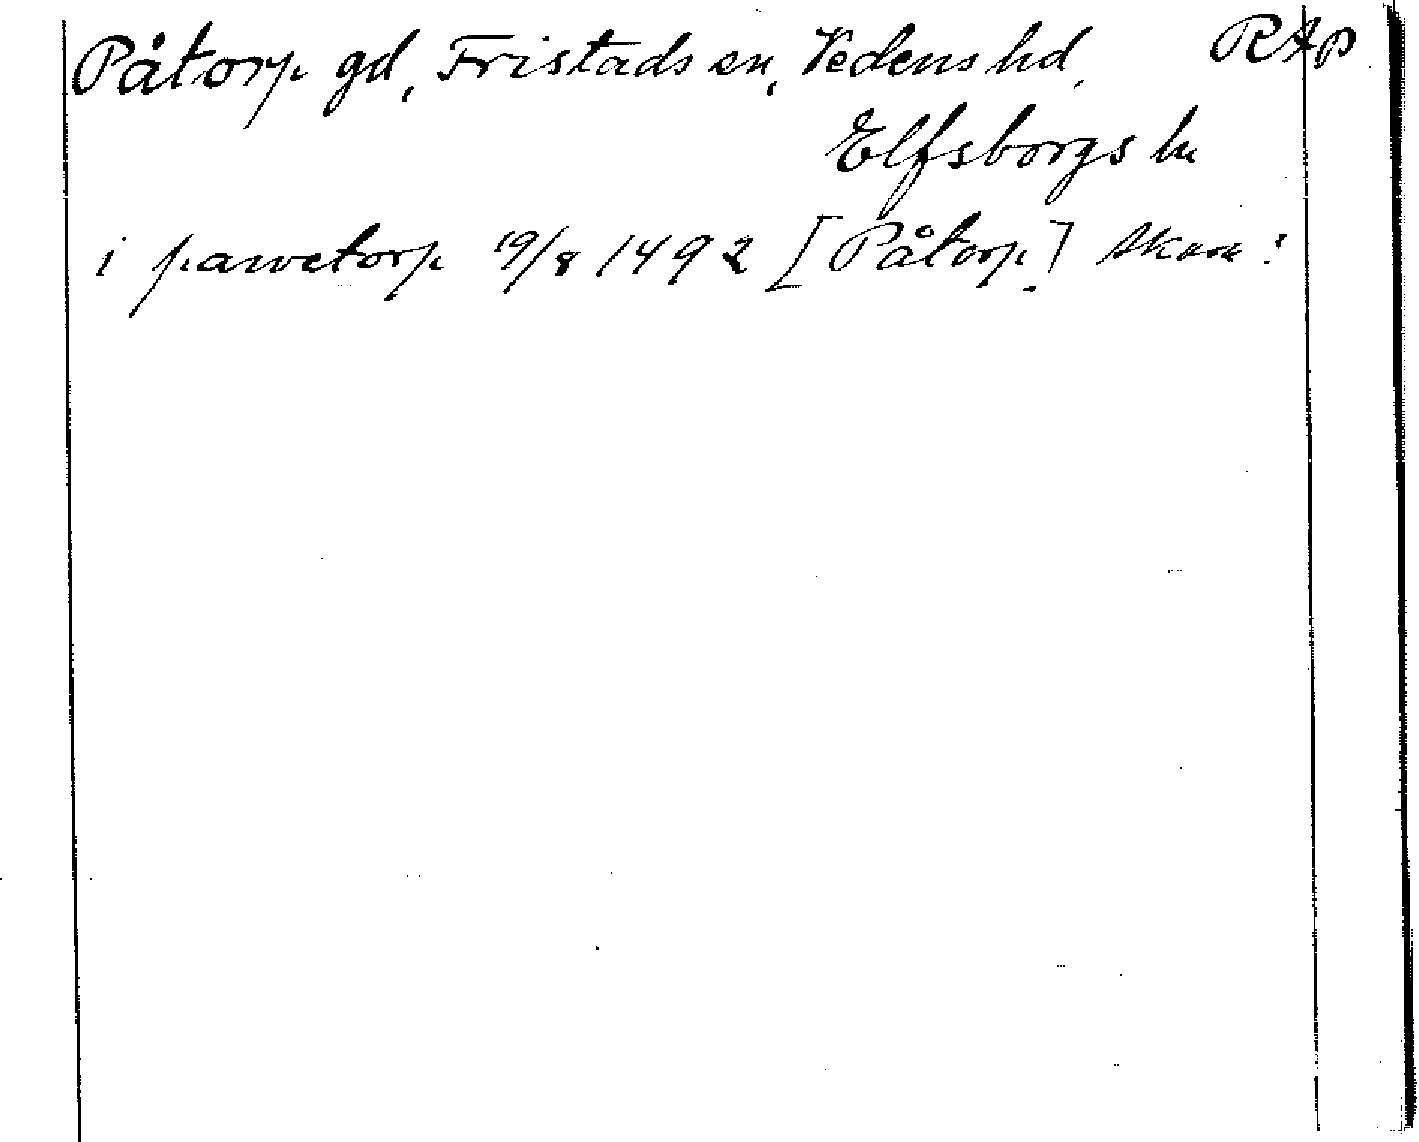 Påtorp gd, Fristads sn, Vedens hd, RAp
Elfsborgs ln
i pawetorp 19/8 1492 [Påtorp.]